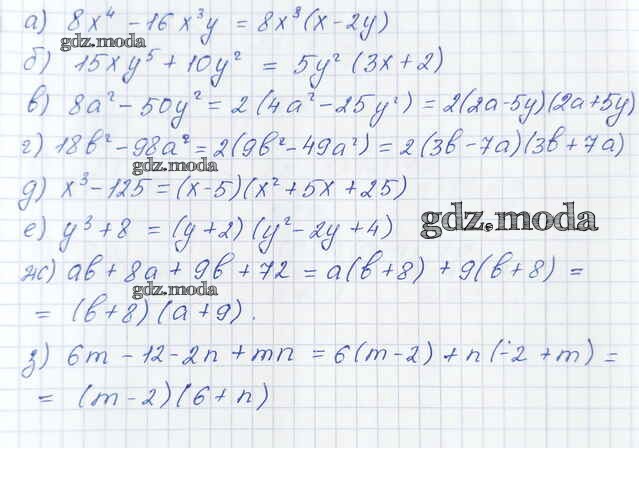 а) 8x⁴ - 16x³y = 8x³(x - 2y)
gdz.moda
б) 15xy⁵ + 10y² = 5y² (3x + 2)
в) 8a² - 50y² = 2(4a² - 25y²) = 2(2a - 5y)(2a + 5y)
г) 18b² - 98a² = 2(9b² - 49a²) = 2(3b - 7a)(3b + 7a)
gdz.moda
д) x³ - 125 = (x - 5)(x² + 5x + 25)
gdz.moda
е) y³ + 8 = (y + 2)(y² - 2y + 4)
ж) ab + 8a + 9b + 72 = a(b + 8) + 9(b + 8) =
gdz.moda
= (b + 8)(a + 9).
з) 6m - 12 - 2n + mn = 6(m - 2) + n(-2 + m) =
= (m - 2)(6 + n)